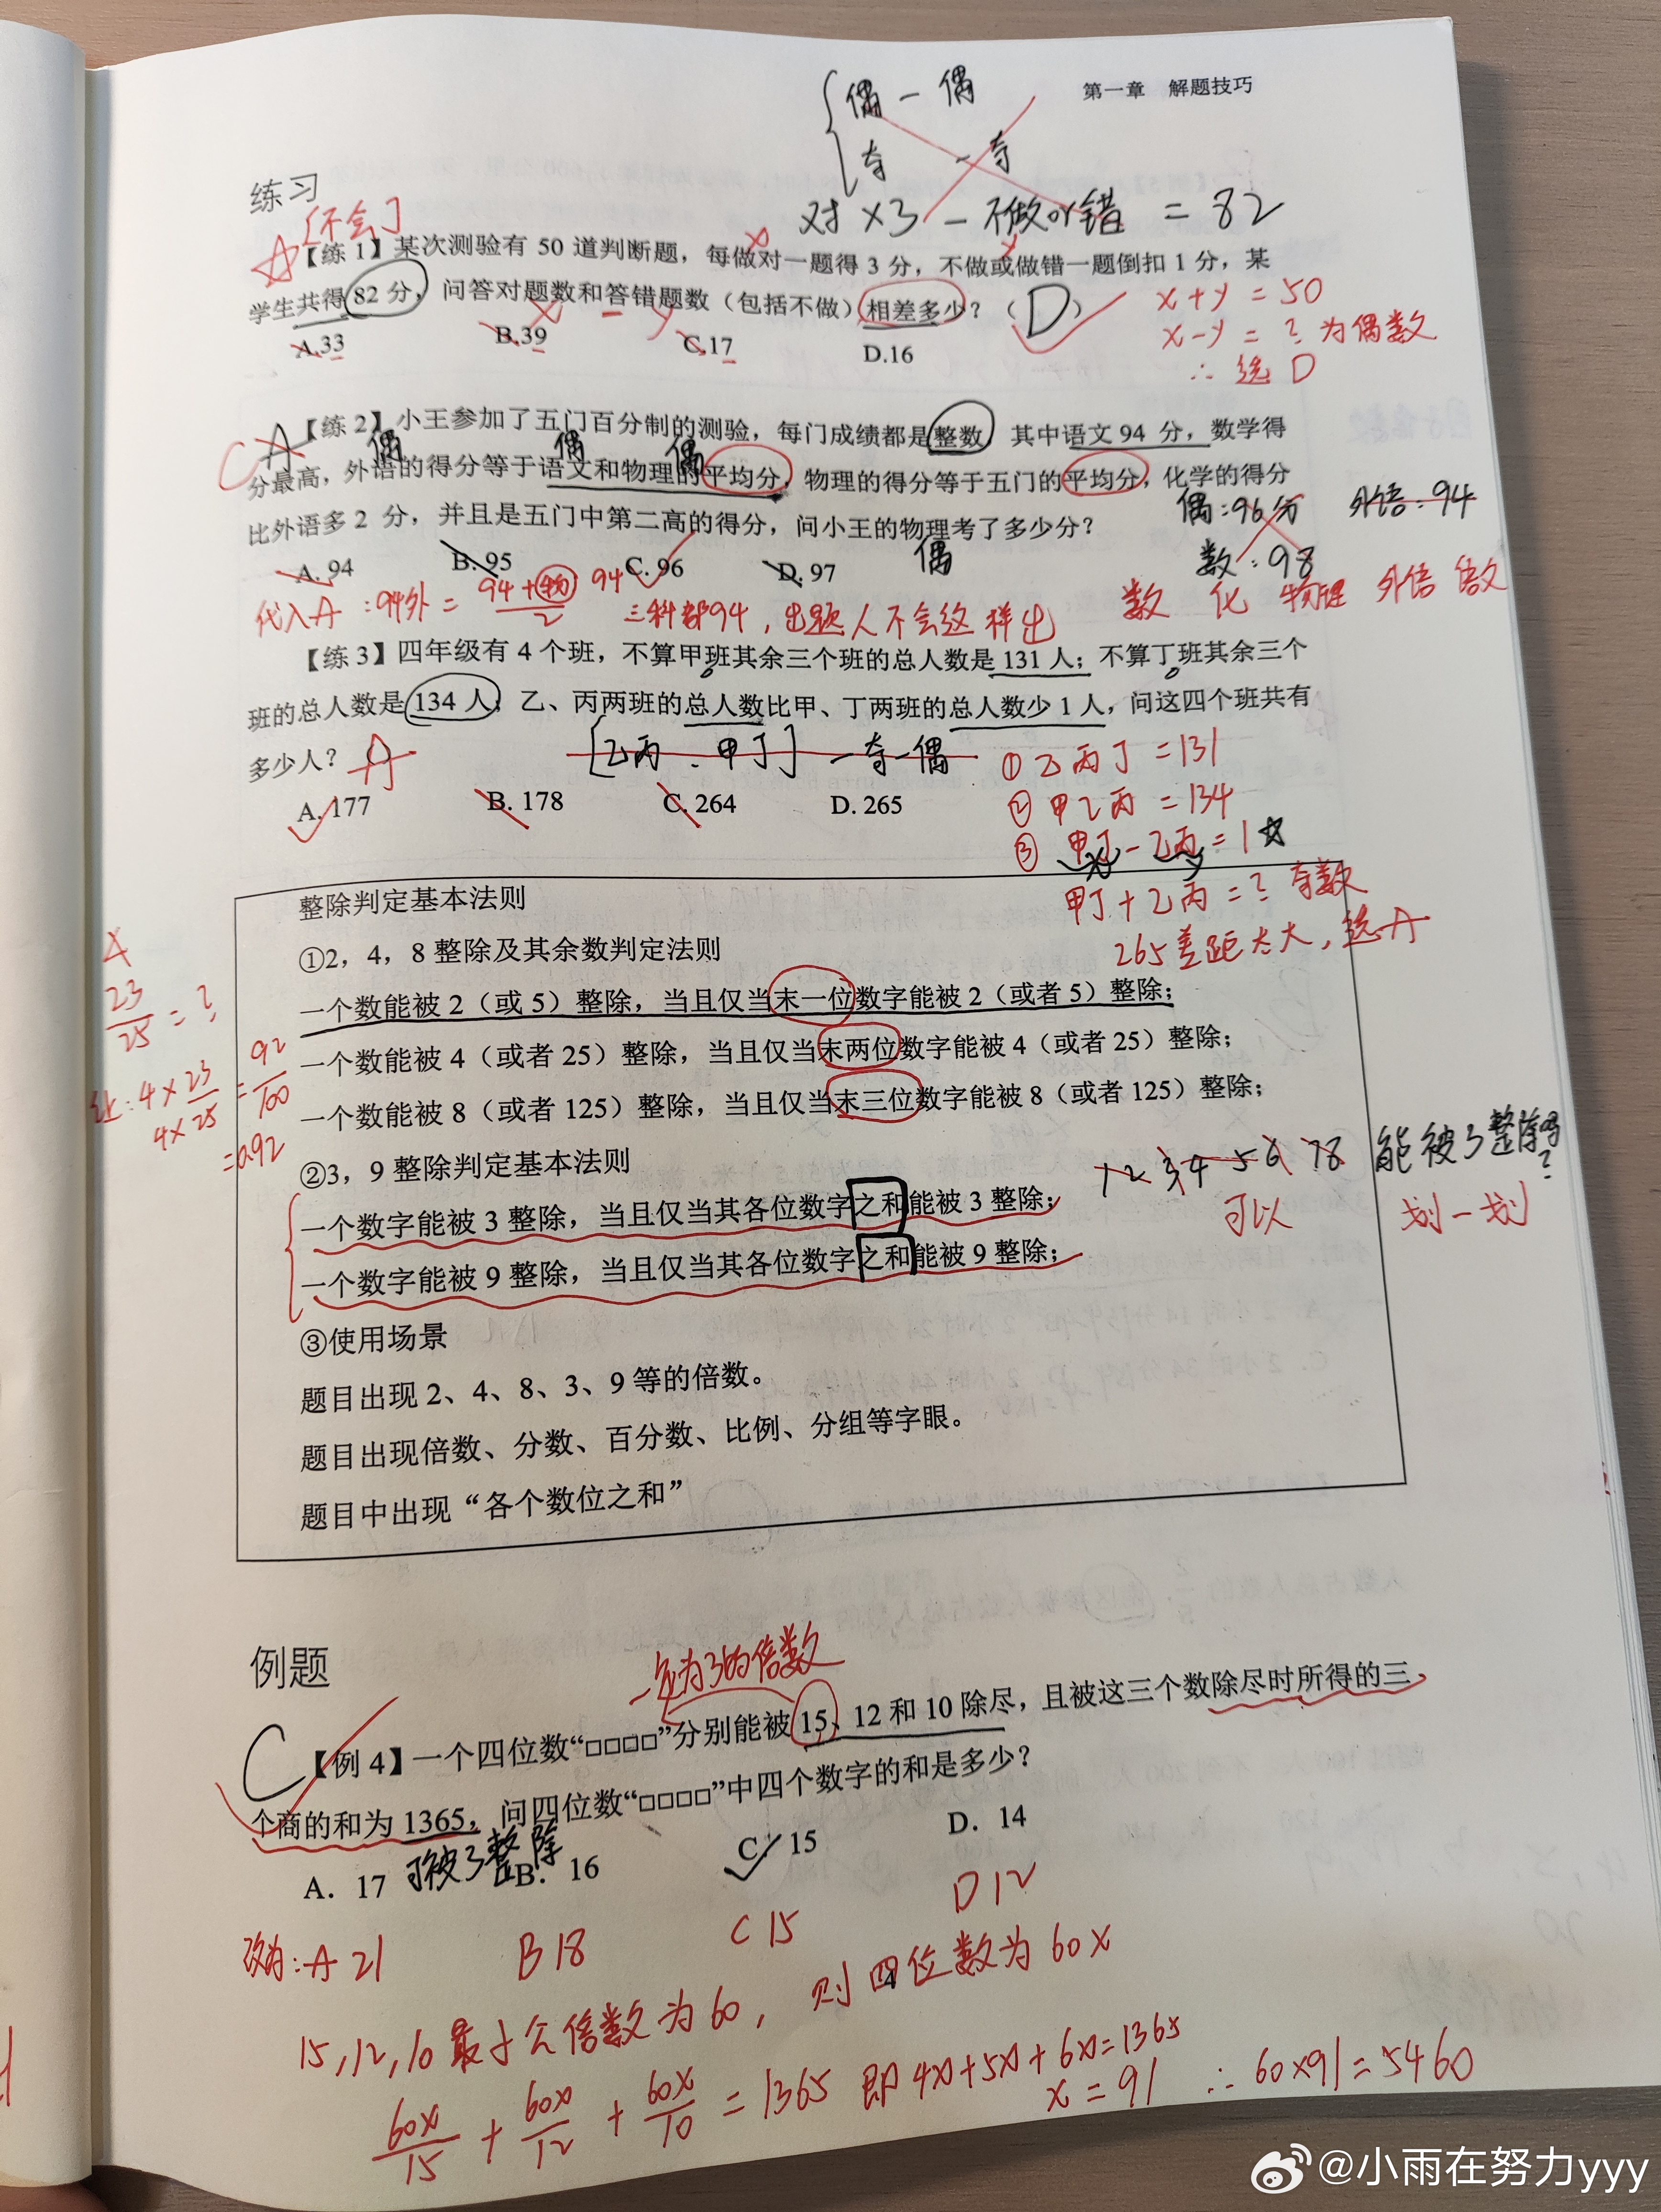 第一章 解题技巧
偶 - 偶
奇 - 奇
练习
[不会]
对×3 - 不做or错 = 82
【练 1】某次测验有 50 道判断题，每做对一题得 3 分，不做或做错一题倒扣 1 分，某
学生共得 82 分，问答对题数和答错题数（包括不做）相差多少？（ D ）
x - y
A.33 B.39 C.17 D.16
x + y = 50
x - y = ? 为偶数
∴ 选 D
C A
【练 2】小王参加了五门百分制的测验，每门成绩都是整数，其中语文 94 分，数学得
偶 偶 偶
分最高，外语的得分等于语文和物理的平均分，物理的得分等于五门的平均分，化学的得分
比外语多 2 分，并且是五门中第二高的得分，问小王的物理考了多少分？
偶
A. 94 B. 95 C. 96 D. 97
偶:96分 外语:94
数:98
代入A :94外 = 94+物/2 94 三科都94，出题人不会这样出
数 化 物理 外语 语文
【练 3】四年级有 4 个班，不算甲班其余三个班的总人数是 131 人；不算丁班其余三个
班的总人数是 134 人；乙、丙两班的总人数比甲、丁两班的总人数少 1 人，问这四个班共有
多少人？ A
[乙丙 . 甲丁] 一奇一偶
A. 177 B. 178 C. 264 D. 265
① 乙丙丁 = 131
② 甲乙丙 = 134
③ 甲丁 - 乙丙 = 1
x y
甲丁 + 乙丙 = ? 奇数
265差距太大，选A
整除判定基本法则
①2，4，8 整除及其余数判定法则
一个数能被 2（或 5）整除，当且仅当末一位数字能被 2（或者 5）整除；
一个数能被 4（或者 25）整除，当且仅当末两位数字能被 4（或者 25）整除；
一个数能被 8（或者 125）整除，当且仅当末三位数字能被 8（或者 125）整除；
23/25 = ?
4×23/4×25 = 92/100
=0.92
②3，9 整除判定基本法则
一个数字能被 3 整除，当且仅当其各位数字之和能被 3 整除；
一个数字能被 9 整除，当且仅当其各位数字之和能被 9 整除；
12 34 56 78 能被3整除吗?
可以 划一划
③使用场景
题目出现 2、4、8、3、9 等的倍数。
题目出现倍数、分数、百分数、比例、分组等字眼。
题目中出现“各个数位之和”
例题
一定为3的倍数
C
【例 4】一个四位数“□□□□”分别能被 15、12 和 10 除尽，且被这三个数除尽时所得的三
个商的和为 1365，问四位数“□□□□”中四个数字的和是多少？
可被3整除
A．17 B．16 C．15 D．14
改为: A 21 B 18 C 15 D 12
15,12,10 最小公倍数为60，则四位数为60x
60x/15 + 60x/12 + 60x/10 = 1365 即 4x+5x+6x=1365
x = 91 ∴ 60×91=5460
@小雨在努力yyy